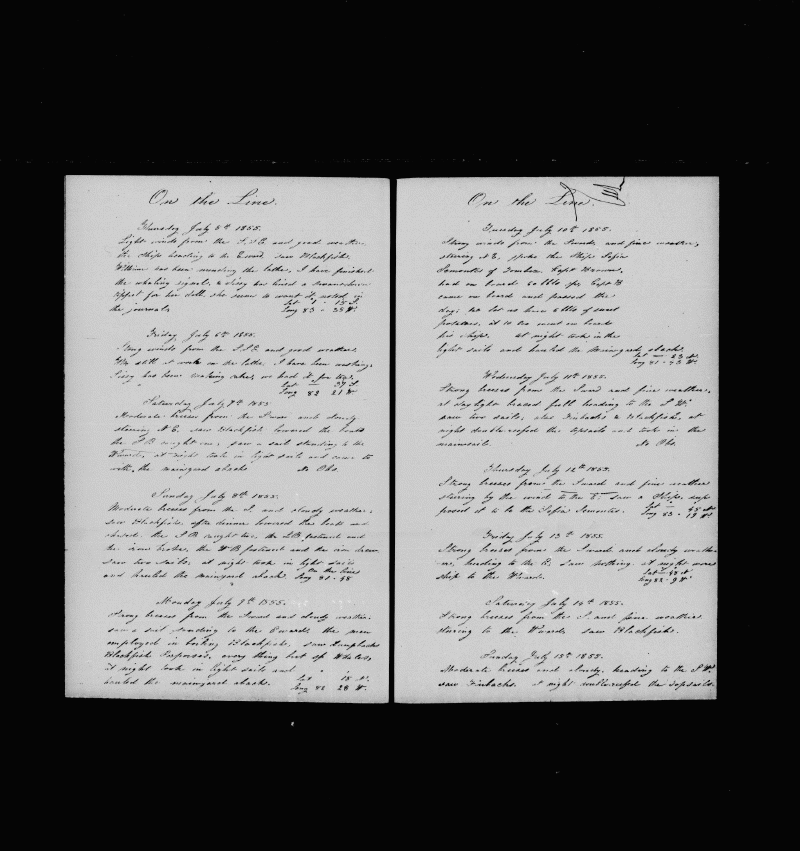 On the Line.
Thursday July 5th 1855.
Light winds from the S.E and good weather
the Ship heading to the E ward. saw Blackfish.
William has been mending the lathe, I have finished
the whaling signals, & Sissy has
for her doll, she seems to want it, noted in
the journal.
Lat 1 " 15 S.
Long 83 " 35 W.
Friday July 6th 1855.
Strong winds from the S.E. and good weather.
Wm still at work on the lathe. I have been washing.
Sissy has been making cakes, we had it for tea.
Lat — 37 S.
Long 82 21 W.
Saturday July 7th 1855
Moderate breeze from the S ward and cloudy
steering N.E. saw Blackfish lowered the boats
the S B caught one, saw a sail standing to the
W ward, at night took in light sails and came to
with the mainyard aback No Obs.
Sunday July 8th 1855.
Moderate breezes from the S and cloudy weather.
saw Blackfish, after dinner lowered the boats and
chased. the S B caught two, the LB fastened and
the iron broke, the WB fastened and the iron drew.
saw two sails, at night took in light sails
and hauled the mainyard aback.
On the line
Long 81 - 48
Monday July 9th 1855.
Strong breezes from the S ward and cloudy weather.
saw a sail standing to the E ward, the men
employed in boiling Blackfish, saw
Blackfish Porpoises, every thing but Sp Whales,
at night took in light sails and
hauled the mainyard aback.
Lat " 18 N.
Long 82 28 W.
On the Line.
Tuesday July 10th 1855.
Strong winds from the S ward, and fine weather,
steering N E, spoke the Ship
of Capt
had on board bbls sp. Capt B
came on board and passed the
day; we let us have bbls of sweet
potatoes, it to be sent on board
his ship. at night took in the
light sails and hauled the Mainyard aback.
Lat — 23 N.
Long 81 - 43 W.
Wednesday July 11th 1855.
Strong breezes from the S ward and fine weather,
at daylight braced full heading to the S W.
saw two sails, also Finbacks & Blackfish, at
night double reefed the topsails and took in the
mainsail. No Obs.
Thursday July 12th 1855.
Strong breezes from the S ward and fine weather
steering by the wind to the E. saw a Ship, sup-
posed it to be the
Lat — 48 N
Long 83 - 19 W.
Friday July 13th 1855.
Strong breezes from the S ward and cloudy weath-
er, heading to the E. saw nothing. at night wore
ship to the W ward.
Lat — 48 N
Long 82 - 9 W.
Saturday July 14th 1855.
Strong breezes from the S. and fine weather
steering to the W ward, saw Blackfish.
Sunday July 15th 1855.
Moderate breezes and cloudy, heading to the S W.
saw Finbacks. at night double reefed the topsails.